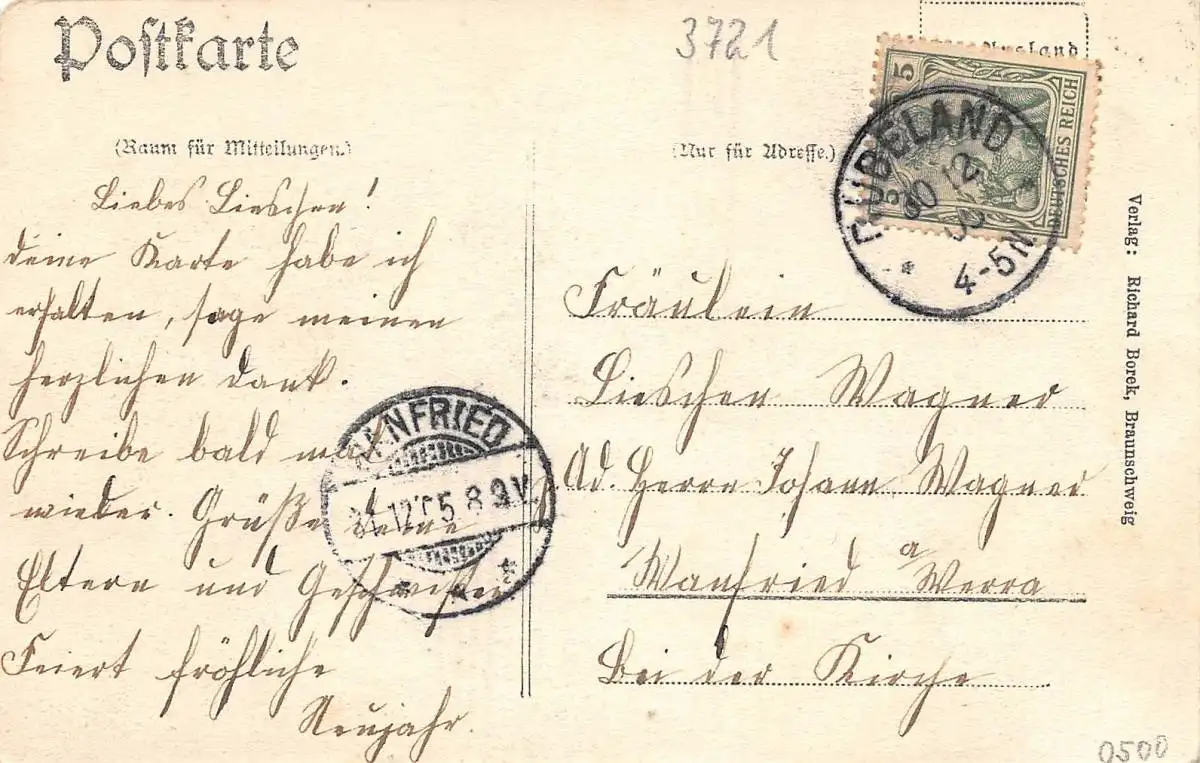 Postkarte
3721
(Raum für Mitteilungen.)
(Nur für Adresse.)
5
DEUTSCHES REICH
RÜBELAND
30 12
4-5N
Liebes Lieschen!
deine Karte habe ich
erhalten, sage meinen
herzlichen Dank.
Schreibe bald mal
wieder. Grüße deine
Eltern und Geschwister
Feiert fröhliche
Neujahr.
WANFRIED
31.12.05 8-9V.
Fräulein
Lieschen Wagner
Ad. Herrn Johann Wagner
Wanfried a Werra
Bei der Kirche
Verlag: Richard Borek, Braunschweig
0500